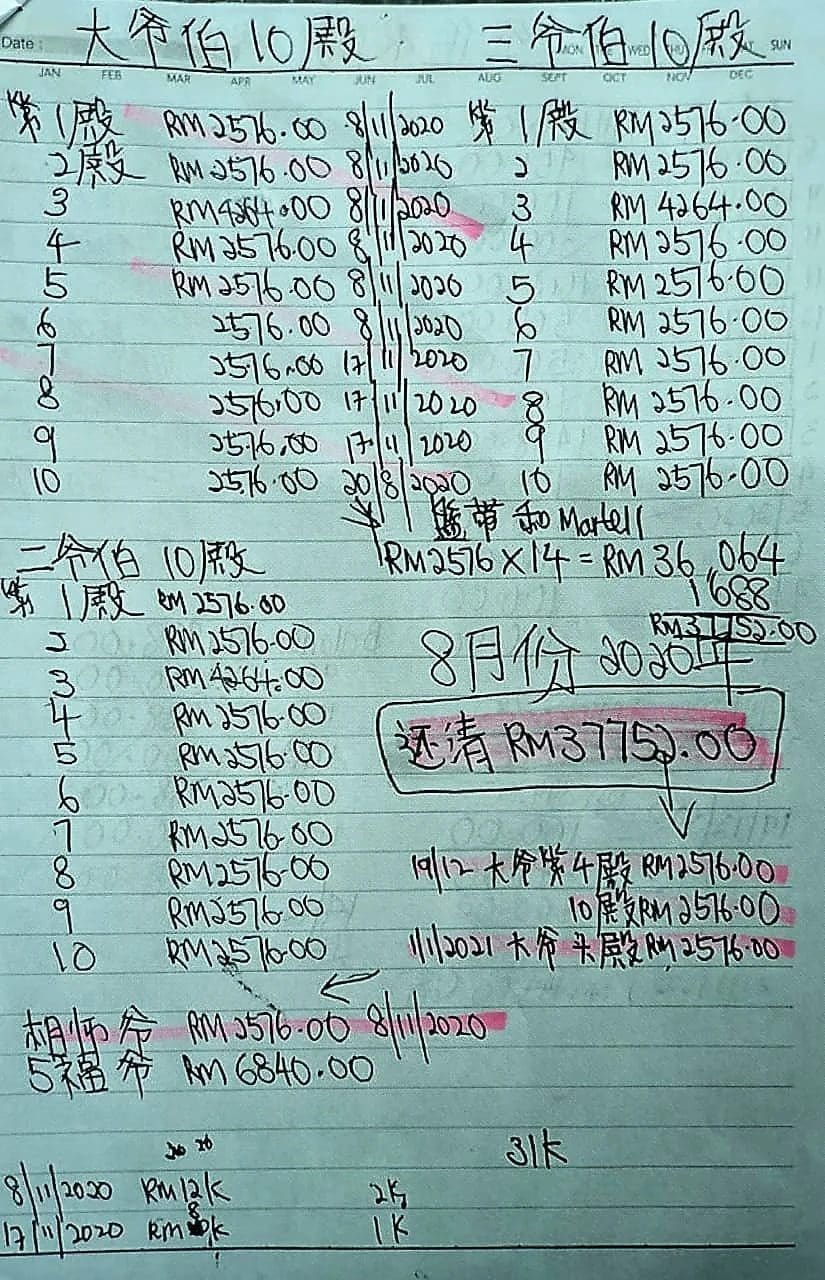 大爷伯10殿 三爷伯10殿
Date: MON WED THU SUN
JAN FEB MAR APR MAY JUN JUL AUG SEPT OCT NOV DEC
第1殿 RM2576.00 8/11/2020 第1殿 RM2576.00
2殿 RM2576.00 8/11/2020 2 RM2576.00
3 RM4264.00 8/11/2020 3 RM4264.00
4 RM2576.00 8/11/2020 4 RM2576.00
5 RM2576.00 8/11/2020 5 RM2576.00
6 2576.00 8/11/2020 6 RM2576.00
7 2576.00 17/11/2020 7 RM2576.00
8 2576.00 17/11/2020 8 RM2576.00
9 2576.00 17/11/2020 9 RM2576.00
10 2576.00 20/8/2020 10 RM2576.00
带和Martell
RM2576×14=RM36,064
1688
RM37752.00
二爷伯10殿
第1殿 RM2576.00
2 RM2576.00
3 RM4264.00
4 RM2576.00
5 RM2576.00
6 RM2576.00
7 RM2576.00
8 RM2576.00
9 RM2576.00
10 RM2576.00
8月份2020年
还清RM37752.00
19/12 大爷第4殿RM2576.00
10殿RM2576.00
1/1/2021 大爷头殿RM2576.00
相师爷 RM2576.00 8/11/2020
5福爷 RM6840.00
31K
8/11/2020 RM12K 2K
17/11/2020 RM8K 1K